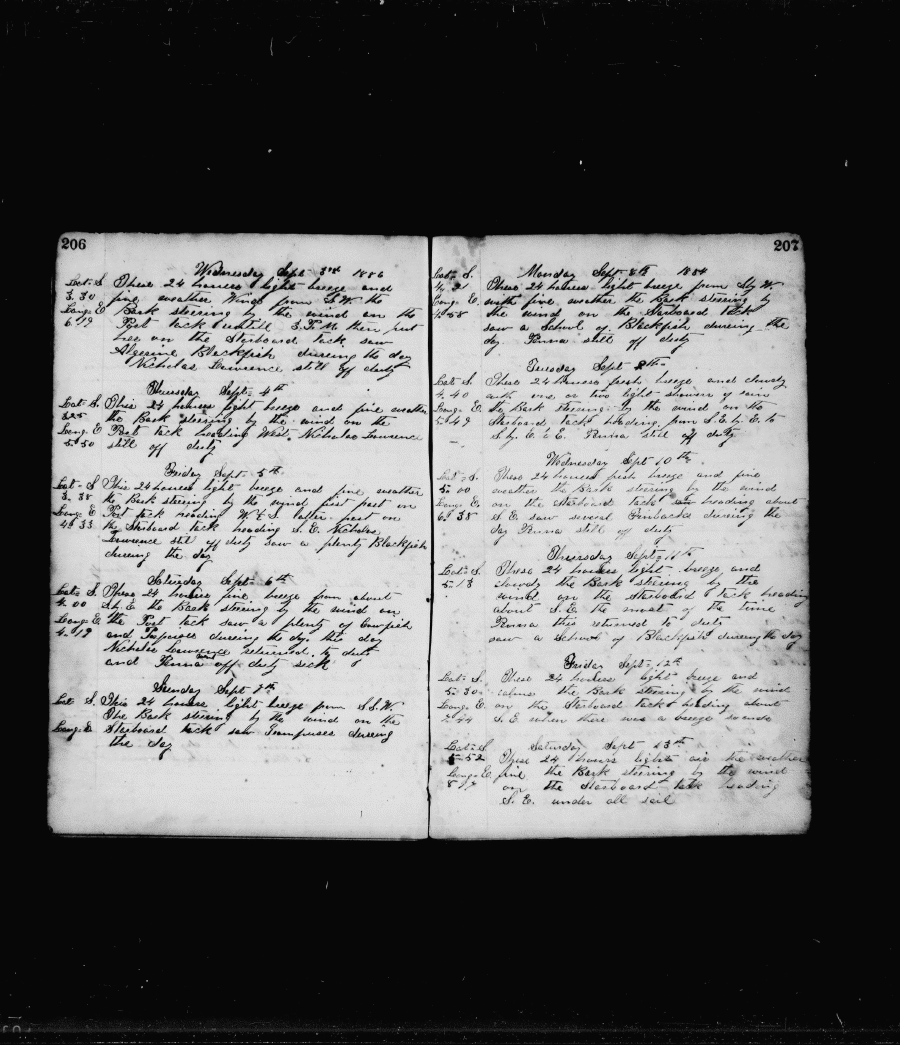 206
Wednesday Sept 3rd 188
Lat. S These 24 houres light breeze and
3.30 fine weather Winds from S.W. the
Long. E Bark steering by the wind on the
6.19 Port tack untill 3. P.M. then put
her on the Starboard tack saw
Algerine Blackfish dureing the day
Nicholas Lawrence still off duty
Thursday Sept. 4th
Lat. S. This 24 houres light breeze and fine weather
3.25 the Bark steering by the wind on the
Long. E Port tack heading West. Nicholas Lawrence
5.50 still off duty
Friday Sept. 5th
Lat. S This 24 houres light breeze and fine weather
3.38 the Bark steering by the wind first part on
Long. E Port tack heading W.&S. latter part on
4.33 the Starboard tack heading S.E. Nicholas
Lawrence still off duty saw a plenty Blackfish
dureing the day
Saturday Sept. 6th
Lat. S. These 24 houres fine breeze from about
4.00 S.by E. the Bark steering by the wind on
Long. E the Port tack saw a plenty of Cowfish
4.19 and Porpuses dureing the day. this day
Nicholas Lawrence returned to duty
and Penna went off duty sick
Sunday Sept 7th
Lat. S. This 24 houres light breeze from S.S.W.
The Bark steering by the wind on the
Long. E Starboard tack saw Grampuses dureing
the day
207
Monday Sept. 8th 1884
Lat. S. These 24 houres light breeze from S.by W
4.21 with fine weather the Bark steering by
Long. E. the wind on the Starboard tack
4.58 saw a School of Blackfish dureing the
day Penna still off duty
Tuesday Sept 9th
Lat. S These 24 houres fresh breeze and cloudy
4.40 with one or two light showers of rain
Long. E. the Bark steering by the wind on the
5.49 Starboard tack heading from S.E. by E. to
S. by E. & E. Penna still off duty
Wednesday Sept 10th
Lat. S. These 24 houres fresh breeze and fine
5.00 weather the Bark steering by the wind
Long. E. on the Starboard tack heading about
6.38 S.E. saw several Finbacks dureing the
day Penna still off duty
Thursday Sept. 11th
Lat. S. These 24 houres light breeze and
5.13 cloudy the Bark steering by the
wind on the Starboard tack heading
about S.E. the most of the time
Penna this returned to duty
saw a School of Blackfish dureing the day
Friday Sept. 12th
Lat. S. These 24 houres light breeze and
5.30 calms the Bark steering by the wind
Long. E on the Starboard tack heading about
7.44 S.E. when there was a breeze
Saturday Sept 13th
Lat. S
5.52 These 24 hours light air the weather
Long. E fine the Bark steering by the wind
8.19 on the Starboard tack heading
S.E. under all sail